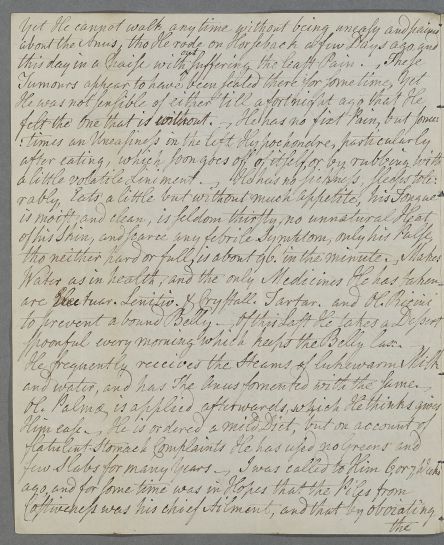 Yet He cannot walk any time without being uneasy and pain'd
about the Anus, tho He rode on Horseback a few Days ago and
this day in a Chaise with out suffering the least Pain. These
Tumours appear to have been seated there for some time, Yet
He was not sensible of either till a fortnight ago that He
felt the one that is without. He has no fixt Pain, but some-
-times an Uneasiness on the left Hypochondre, particularly
after eating, which soon goes off of itself, or by rubbing with
a little volatile Liniment. He has no sickness, sleeps tole-
rably, eats a little but without much appetite, his Tongue
is moist and clean, is seldom thirsty, no unnatural Heat
of his Skin, and scarce any febrile Symptom, only his Pulse,
tho neither hard or full, is about 96. in the minute, Makes
Water as in health, and the only Medicines He has taken
are Electuar. Lenitiv. & Crystall. Tartar. and Ol. Ricini
to prevent a bound Belly. Of this last He takes a Desert
spoonful every morning which keeps the Belly lax.
He frequently receives the Steams of lukewarm Milk
and water, and has The Anus fomented with the same.
Ol. Palmæ is applied afterwards, which He thinks gives
Him ease. He is ordered a mild Diet, but on account of
flatulent Stomach Complaints He has used no Greens and
few Slabs for many Years. I was called to Him 6 or 7 Weeks
ago, and for some time was in Hopes that the Piles from
Costiveness was his chief Ailment, and that by obviating
the